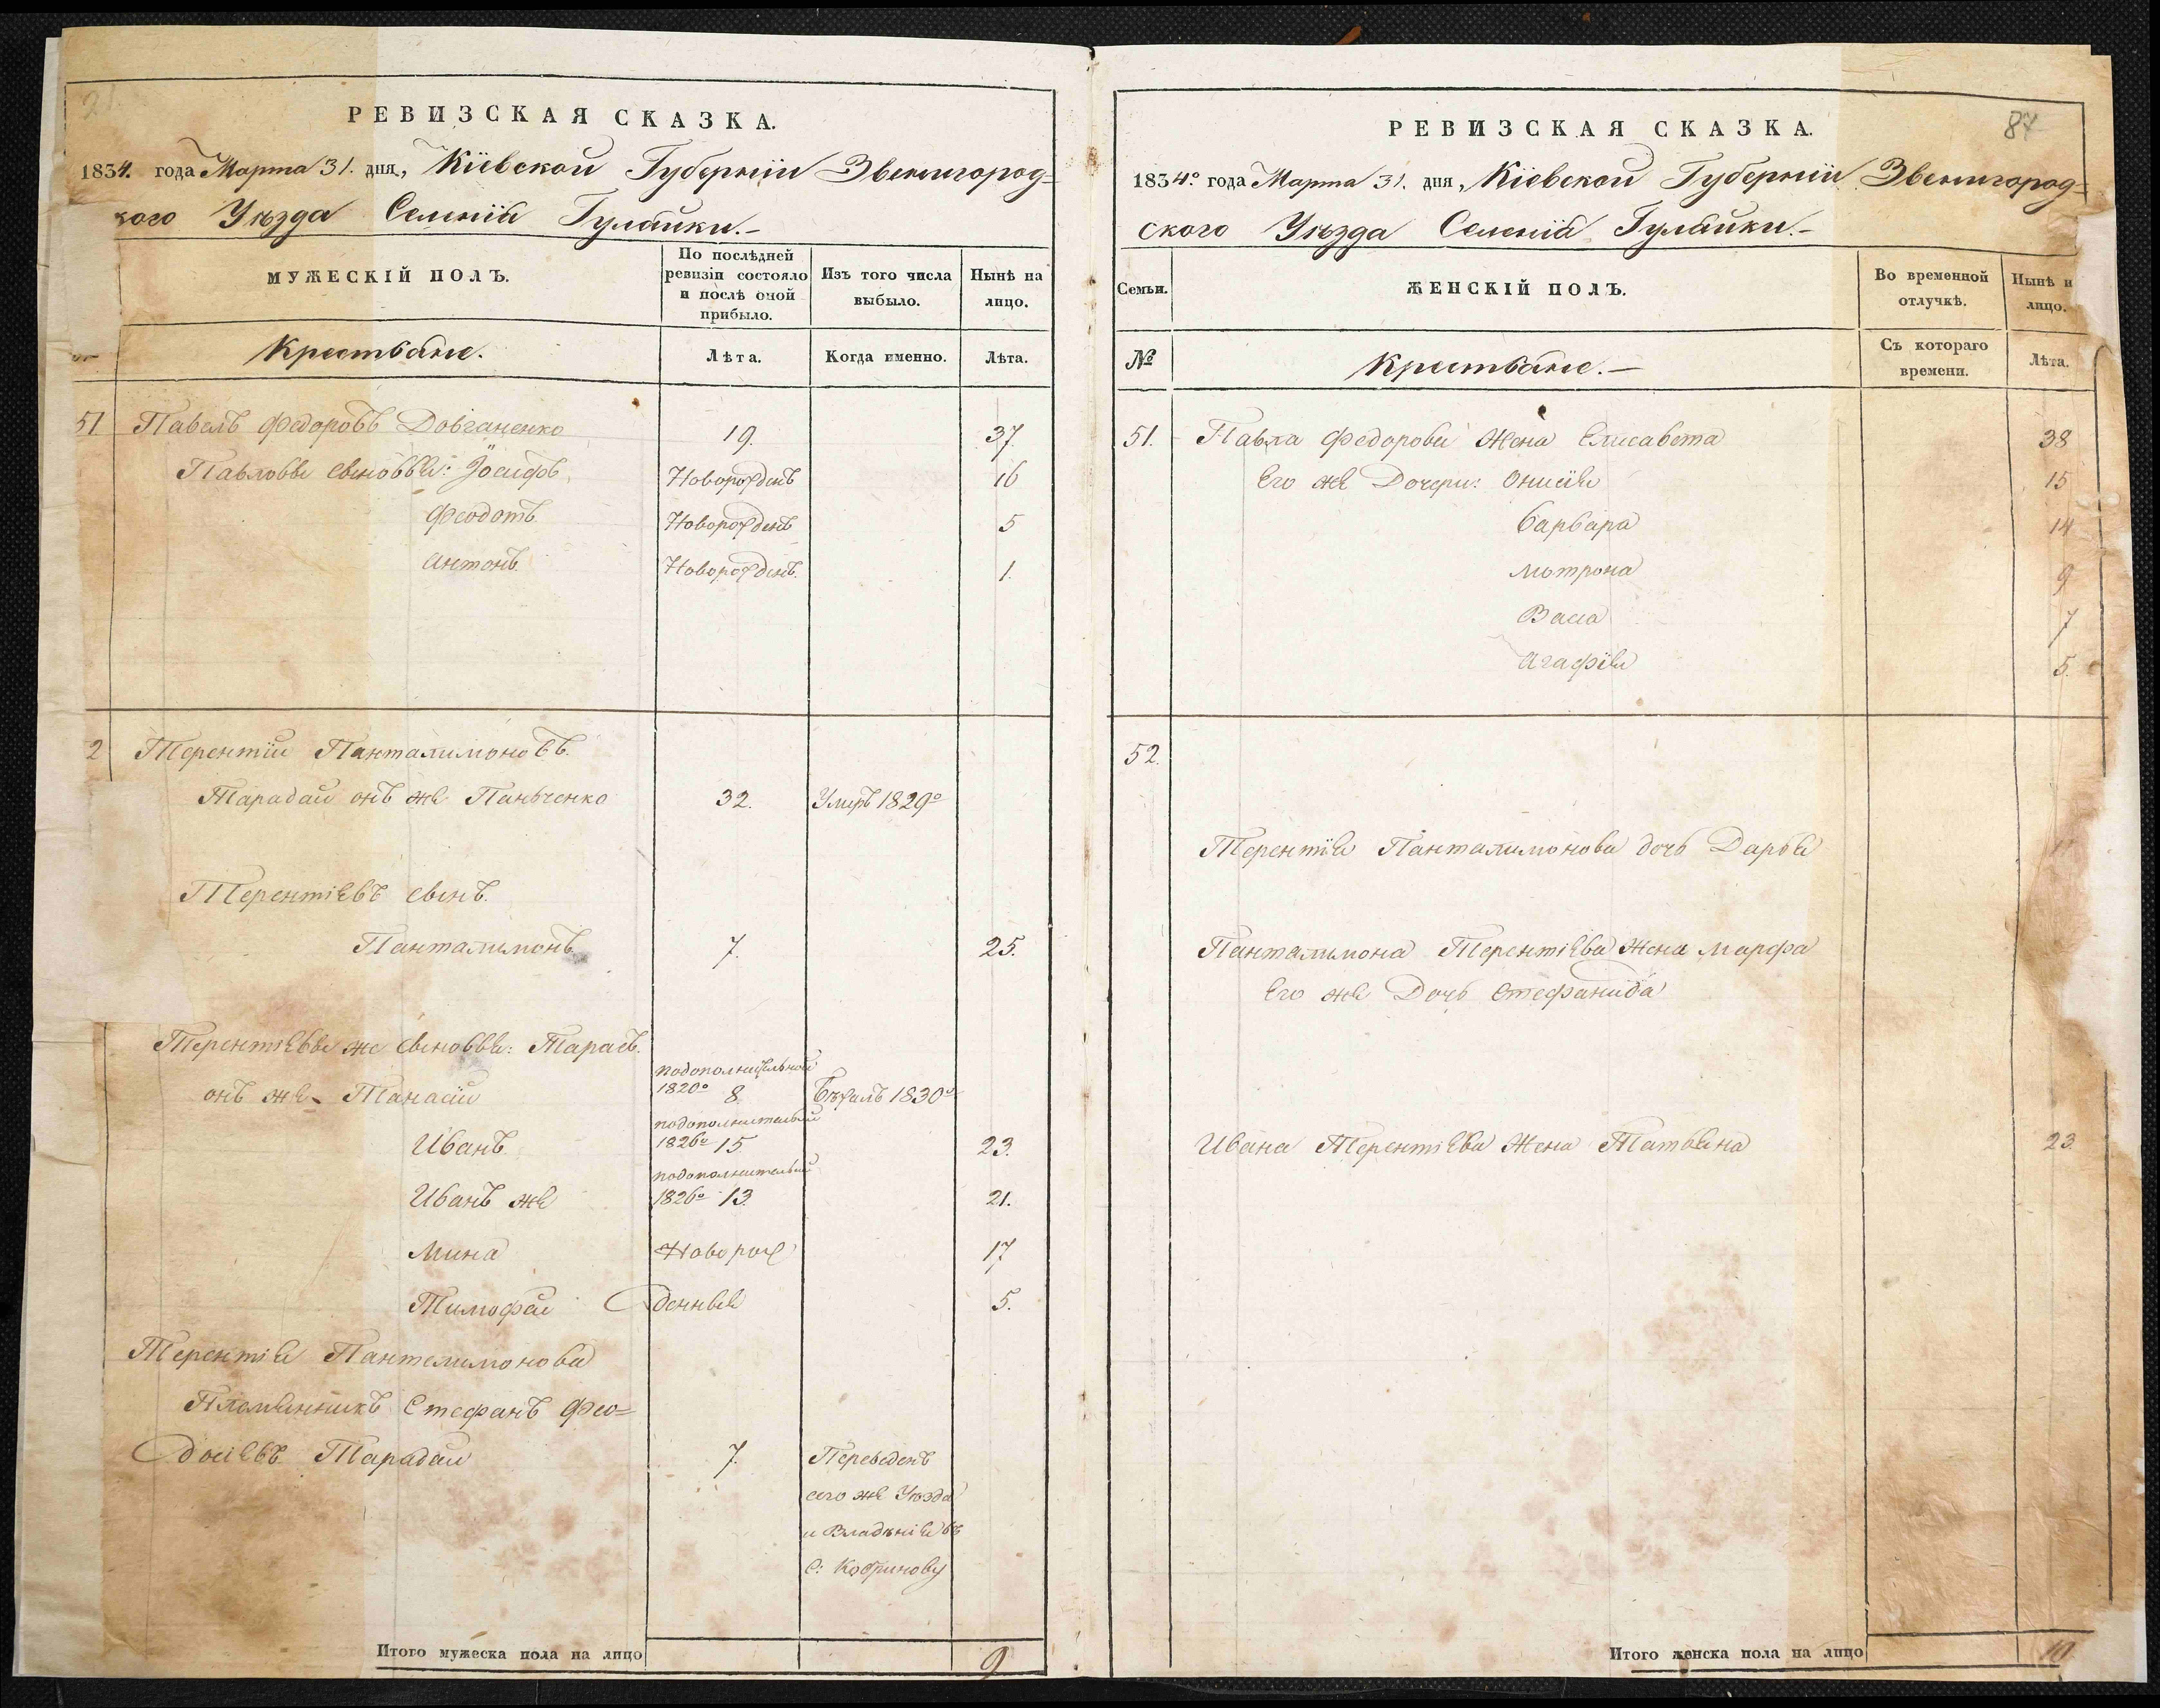 РЕВИЗСКАЯ СКАЗКА.
1834. года Марта 31. дня, Кіевской Губерніи Звенигород=
кого Уѣзда Селенія Гулайки.-
МУЖЕСКІЙ ПОЛЪ.
По послѣдней ревизіи состояло и послѣ оной прибыло.
Изъ того числа выбыло.
Нынѣ на лицо.
Крестьяне.
Лѣта.
Когда именно.
Лѣта.
51 Павелъ Федоровъ Довганенко 19. 37.
Павловы сыновья: Іосифъ Новорожденъ 16
Феодотъ Новорожденъ 5
Антонъ Новорожденъ. 1.
2 Терентій Панталимоновъ.
Тарадай онъ же Панченко 32. Умеръ 1829º
Терентіевъ сынъ.
Панталимонъ 7. 25.
Терентіевы же сыновья: Тарасъ.
подополнительной
онъ же Танасій 1820º 8. Бѣжалъ 1830º
подополнительной
Иванъ 1826º 15. 23.
подополнительной
Иванъ же 1826º 13. 21.
Мина Новорож 17
Тимофей денные 5.
Терентія Пантелимонова
Племянникъ Стефанъ Фео=
досіевъ Тарадай 7. Переведенъ
сего же Уѣзда
и Владѣнія въ
С: Кобринову
Итого мужеска пола на лицо 9
87
РЕВИЗСКАЯ СКАЗКА.
1834º года Марта 31. дня, Кіевской Губерніи Звенигород=
ского Уѣзда Селенія Гулайки.-
Семьи.
ЖЕНСКІЙ ПОЛЪ.
Во временной отлучкѣ.
Нынѣ н лицо.
№
Крестьяне.-
Съ котораго времени.
Лѣта.
51. Павла Федорова Жена Елисавета 38
Его же Дочери: Онисія 15
Варвара 14
Мотрона 9
Васса 7
Агафія 5.
52.
Терентія Панталимонова дочь Дарья
Панталимона Терентіева Жена Марфа
Его же Дочь Стефанида
Ивана Терентіева Жена Татьяна 23
Итого женска пола на лицо 10